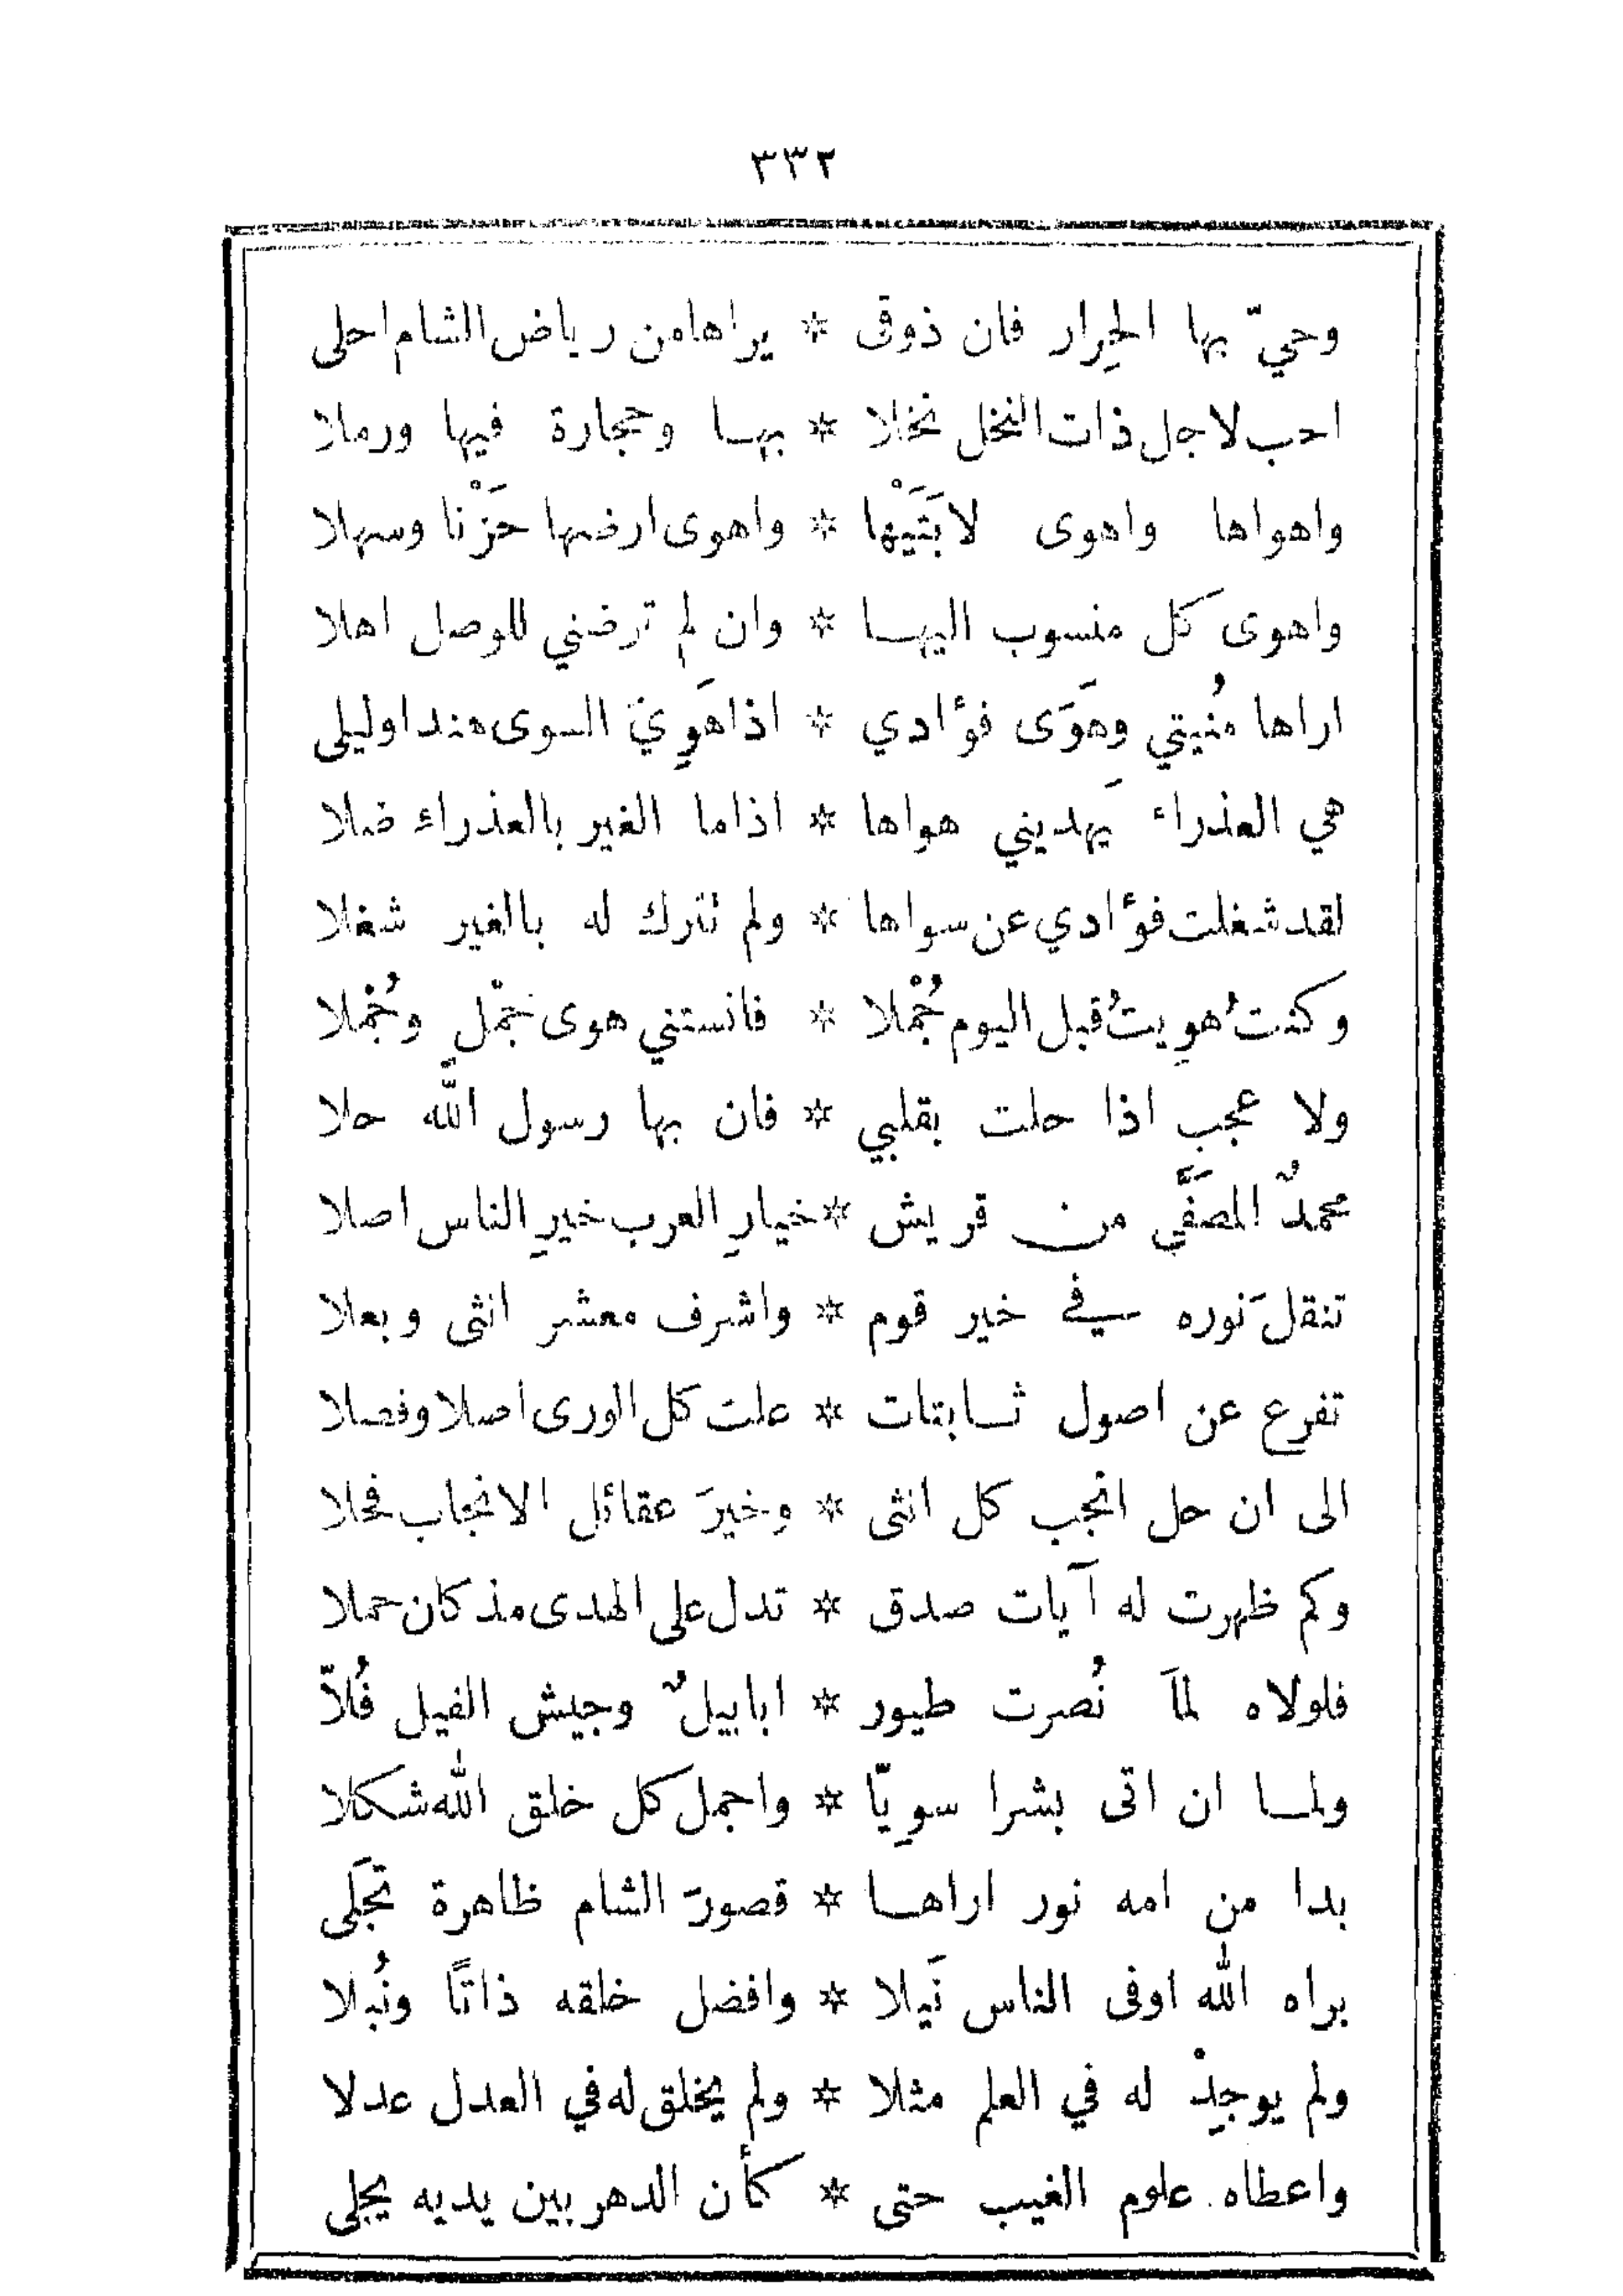 ٣٣٢
وحيّ بها الحِرار فان ذوقى * يراها من رياض الشام احلى
احب لاجل ذات النخل نخلا * بها وحجارة فيها ورملا
واهواها واهوى لابَتَيْها * واهوى ارضها حَزْنا وسهلا
واهوى كل منسوب اليها * وان لم ترضني للوصل اهلا
اراها مُنيتي وهَوَى فؤادي * اذا هَوِيَ السوى هندا وليلى
هي العذراء يَهديني هواها * اذا ما الغير بالعذراء ضلا
لقد شغلت فؤادي عن سواها * ولم تترك له بالغير شغلا
وكنتُ هوِيتُ قبل اليوم جُمْلا * فانستني هوى جُمْلٍ وجُمْلا
ولا عجب اذا حلت بقلبي * فان بها رسول الله حلا
محمدٌ المصَفَّى من قريش * خيارِ العرب خيرِ الناس اصلا
تنقل نَوره في خير قوم * واشرف معشر انثى وبعلا
تفرع عن اصول ثابتات * علت كل الورى اصلا وفصلا
الى ان حل انجب كل انثى * وخيرَ عقائل الانجاب فحلا
وكم ظهرت له آيات صدق * تدل على الهدى مذ كان حملا
فلولاه لمَا نُصرت طيور * ابابيلٌ وجيش الفيل فُلاّ
ولما ان اتى بشرا سوِيّا * واجمل كل خلق الله شكلا
بدا من امه نور اراها * قصورَ الشام ظاهرة تجَلى
براه الله اوفى الناس نَيلا * وافضل خلقه ذاتًا ونُبلا
ولم يوجِدْ له في العلم مثلا * ولم يخلق له في العدل عدلا
واعطاه علوم الغيب حتى * كأن الدهر بين يديه يجلى